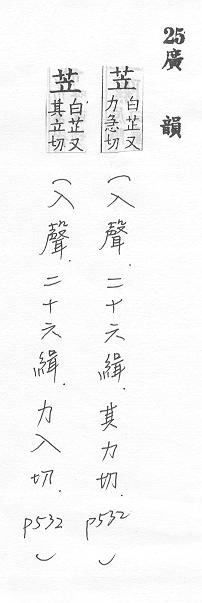 25廣韻
苙 白苙又
力急切
(入聲.二十六緝.其力切.p532)
苙 白苙又
其立切
(入聲.二十六緝.力入切.p532)